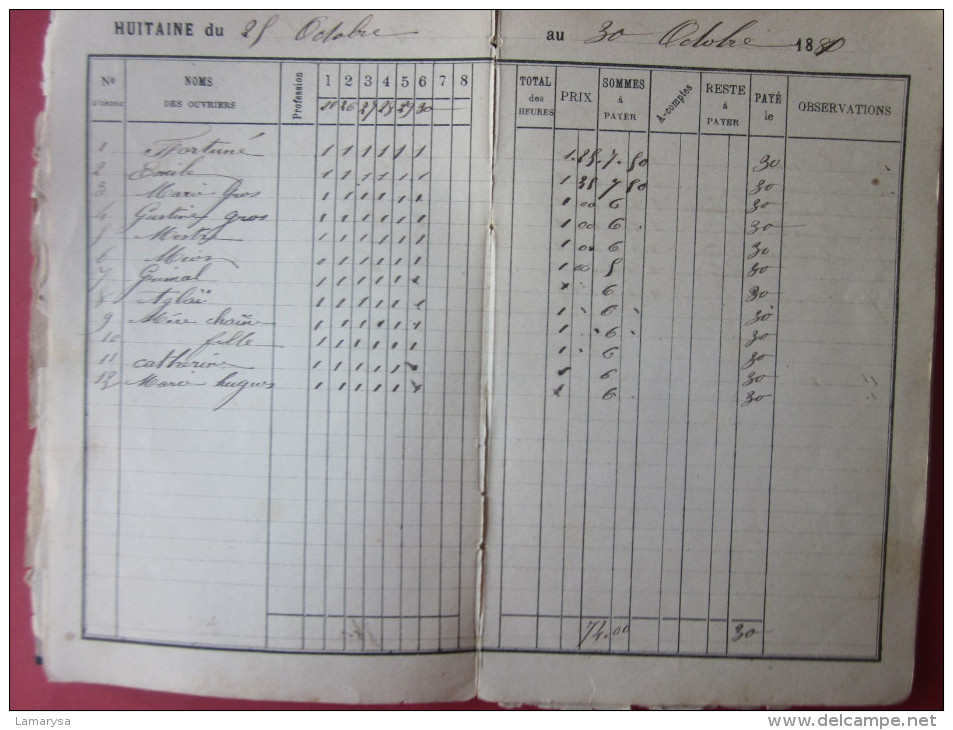 HUITAINE du 25 Octobre au 30 Octobre 1880
No D'ORDRE NOMS DES OUVRIERS Profession 1 2 3 4 5 6 7 8 TOTAL des HEURES PRIX SOMMES à PAYER A-comptes RESTE à PAYER PAYÉ le OBSERVATIONS
26 27 29 30
1 Fortuné 1 1 1 1 1 1 1.25 7.50 30
2 Emile 1 1 1 1 1 1 1 25 7 50 30
3 Marie Gros 1 1 1 1 1 1 1 00 6 30
4 gros 1 1 1 1 1 1 1 00 6 30
5 1 1 1 1 1 1 1 00 6 30
6 1 1 1 1 1 1 00 5 30
7 Guimal 1 1 1 1 1 6 30
8 Aglaï 1 1 1 1 1 1 1 6 30
9 Mère chaine 1 1 1 1 1 1 1 6 30
10 fille 1 1 1 1 1 1 1 6 30
11 catherine 1 1 1 1 1 6 30
12 Marie hugues 1 1 1 1 1 6 30
74.00 30
Lamarysa
www.delcampe.net